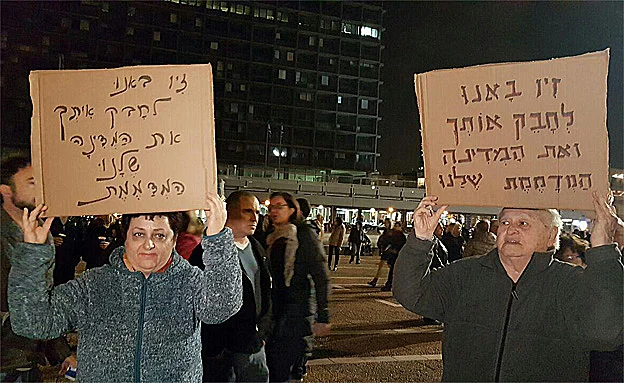 זיו באנו
לחבק איתך
את המדינה
שלנו
המדממת
זיו באנו
לחבק אותך
ואת המדינה
שלנו